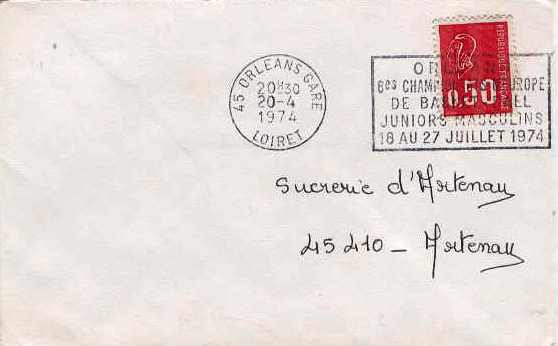 45 ORLEANS GARE
20H30
20-4
1974
LOIRET
REPUBLIQUE FRANÇAISE
0.50
6es CHAMP EUROPE
DE BA LL
JUNIORS MASCULINS
18 AU 27 JUILLET 1974
Sucrerie d'Artenay
45410 - Artenay